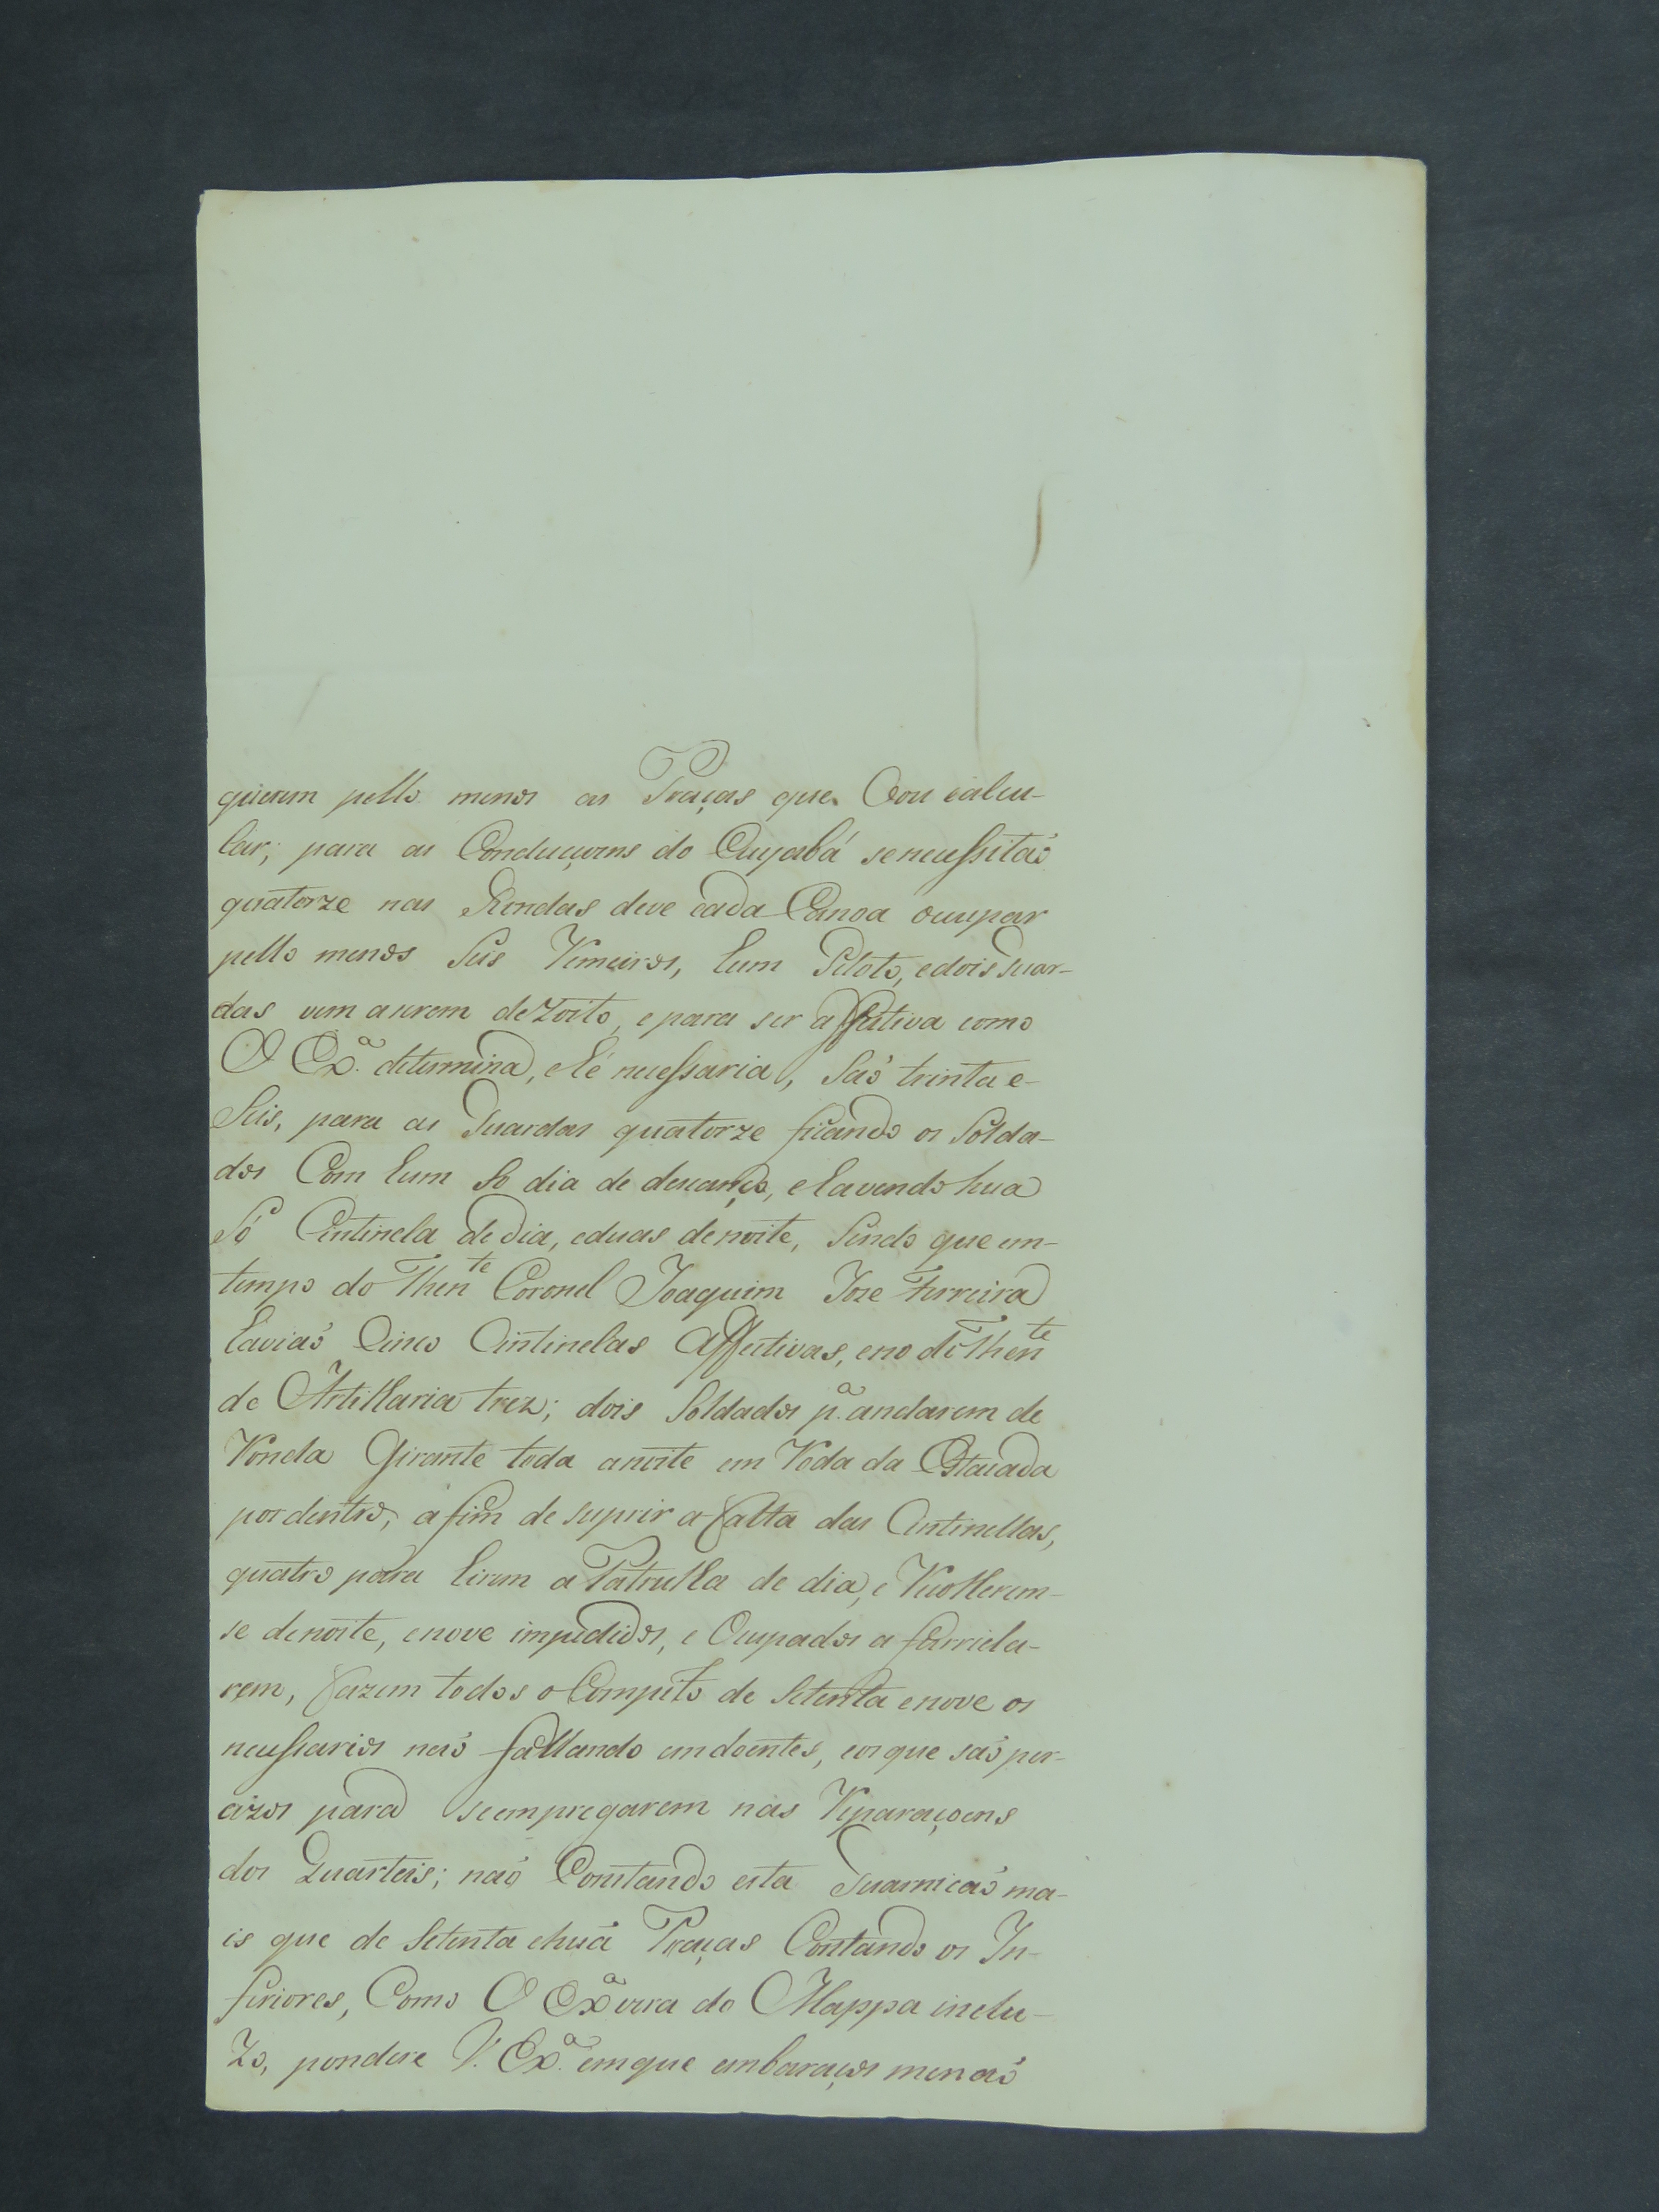 querem pello menos as Praças que vou calcu-
lar; para as Conduçoens do Cuyabá se necessitaõ
quatorze nas Rondas deve cada Canoa ocupar
pello menos seis Remeiros, hum Piloto, e dois Guar-
das vem a serem dezoito, e para ser affectiva como
V Ex.ª determina, e hé necessaria, saõ trinta e
seis, para as Guardas quatorze ficando os Solda-
dos Com hum só dia de descanço, e havendo hua
Só Centinela de dia, e duas de noite, sendo que em
tempo do Then.te Coronel Joaquim Joze Ferreira
haviaõ Cinco Centinelas Affectivas, e no do Then.te
de Artilharia trez; dois Soldados p.ª andarem de
Ronda Girante toda a noite em Roda da Estacada
por dentro, a fim de suprir a falta das Centinellas,
quatro para hirem a Patrulha de dia, e Recolherem-
se de noite, e nove impedidos, e Ocupados a
fazem todos o Computo de setenta e nove os
necessarios naõ fallando em doentes, e os que saõ per-
cizos para se empregarem nas Reparaçoens
dos Quarteis; naõ Constando esta Guarnicaõ ma-
is que de setenta e huã Praças Contando os In-
feriores, Como V Ex.ª verá do Mappa inclu-
zo, pondere V. Ex.ª em que embaraços me naõ